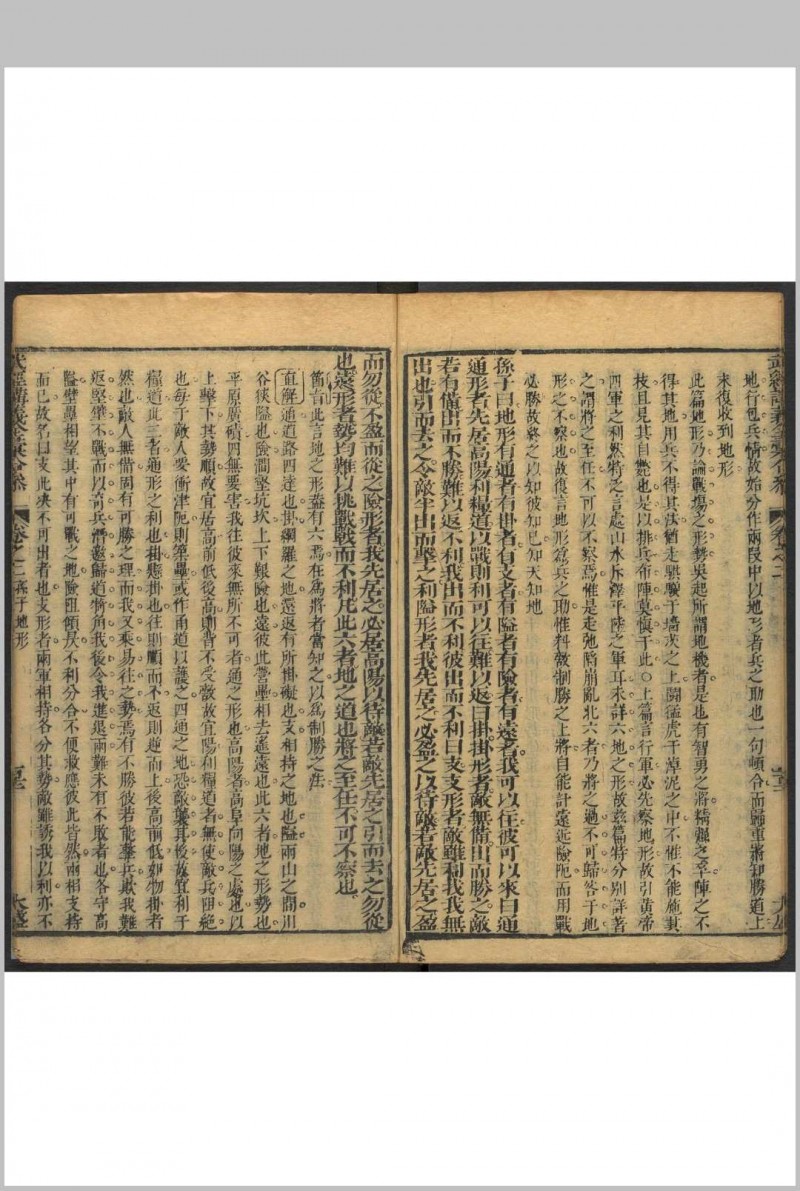 地行包兵情故始分作兩段中以地形者兵之助也一句頓令而歸重將知勝道上
未復收到地形
此篇地形乃論戰場之形勢吳起所謂地機者是也有智勇之將精強之卒陣之不
得其地用兵不得其法猶走騏驥于墻茨之上鬪猛虎于淖泥之中不惟不能施其
枝且見其自斃也是以排兵布陣莫慎于此○上篇言行軍必先察地形故引黃帝
四軍之利然特之言處山水斥澤平陸之軍耳未詳六地之形故茲篇特分別詳著
之謂將之至任不可以不察焉惟是走弛陷崩亂北六者乃將之過不可歸咎于地
形之不察也故復言地形爲兵之助惟料敵制勝之上將自能計遠近險阨而用戰
必勝故終之以知彼知己知天知地
孫子曰地形有通者有掛者有支者有隘者有險者有遠者我可以往彼可以來曰通
通形者先居高陽利糧道以戰則利可以往難以返曰掛掛形者敵無備出而勝之敵
若有備出而不勝難以返不利我出而不利彼出而不利曰支支形者敵雖利我我無
出也引而去之令敵半出而擊之利隘形者我先居之必盈之以待敵若敵先居之盈
而勿從不盈而從之險形者我先居之必居高陽以待敵若敵先居之引而去之勿從
也遠形者勢均難以挑戰戰而不利凡此六者地之道也將之至任不可不察也
節言此言地之形葢有六焉在爲將者當知之以爲制勝之在
直解通道路四達也掛網羅之地還返有所掛礙也支相持之地也隘兩山之間川
谷狹隘也險澗壑坑坎上下艱險也遠彼此營壘相去遙遠也此六者地之形勢也
平原廣磧四無要害我往彼來無所不可者通之形也高陽者高阜向陽之處也以
上擊下其勢順故宜居高前低後高則背不受敵故宜陽利糧道者無使敵兵阻絶
也每于敵人爰衝津阨則築壘或作甬道以護之四通之地恐敵襲其後故宜利于
糧道此三者通形之利也掛懸掛也往則順而下返則逆而上後高前低如物掛者
然也敵人無備固有可勝之理而我又乘易往之勢焉有不勝彼若能整兵欺我難
返堅壁不戰而以奇兵潛邀歸道犄角我後令我進退兩難未有不敗者也各守高
隘壁壘相望其中有可戰之地險阻傾仄不利分合不便救應彼此皆然兩相支持
而已故名曰支此决不可出者也支形者兩軍相持各分其勢敵難誘我以利亦不
卷之二 孫子地形